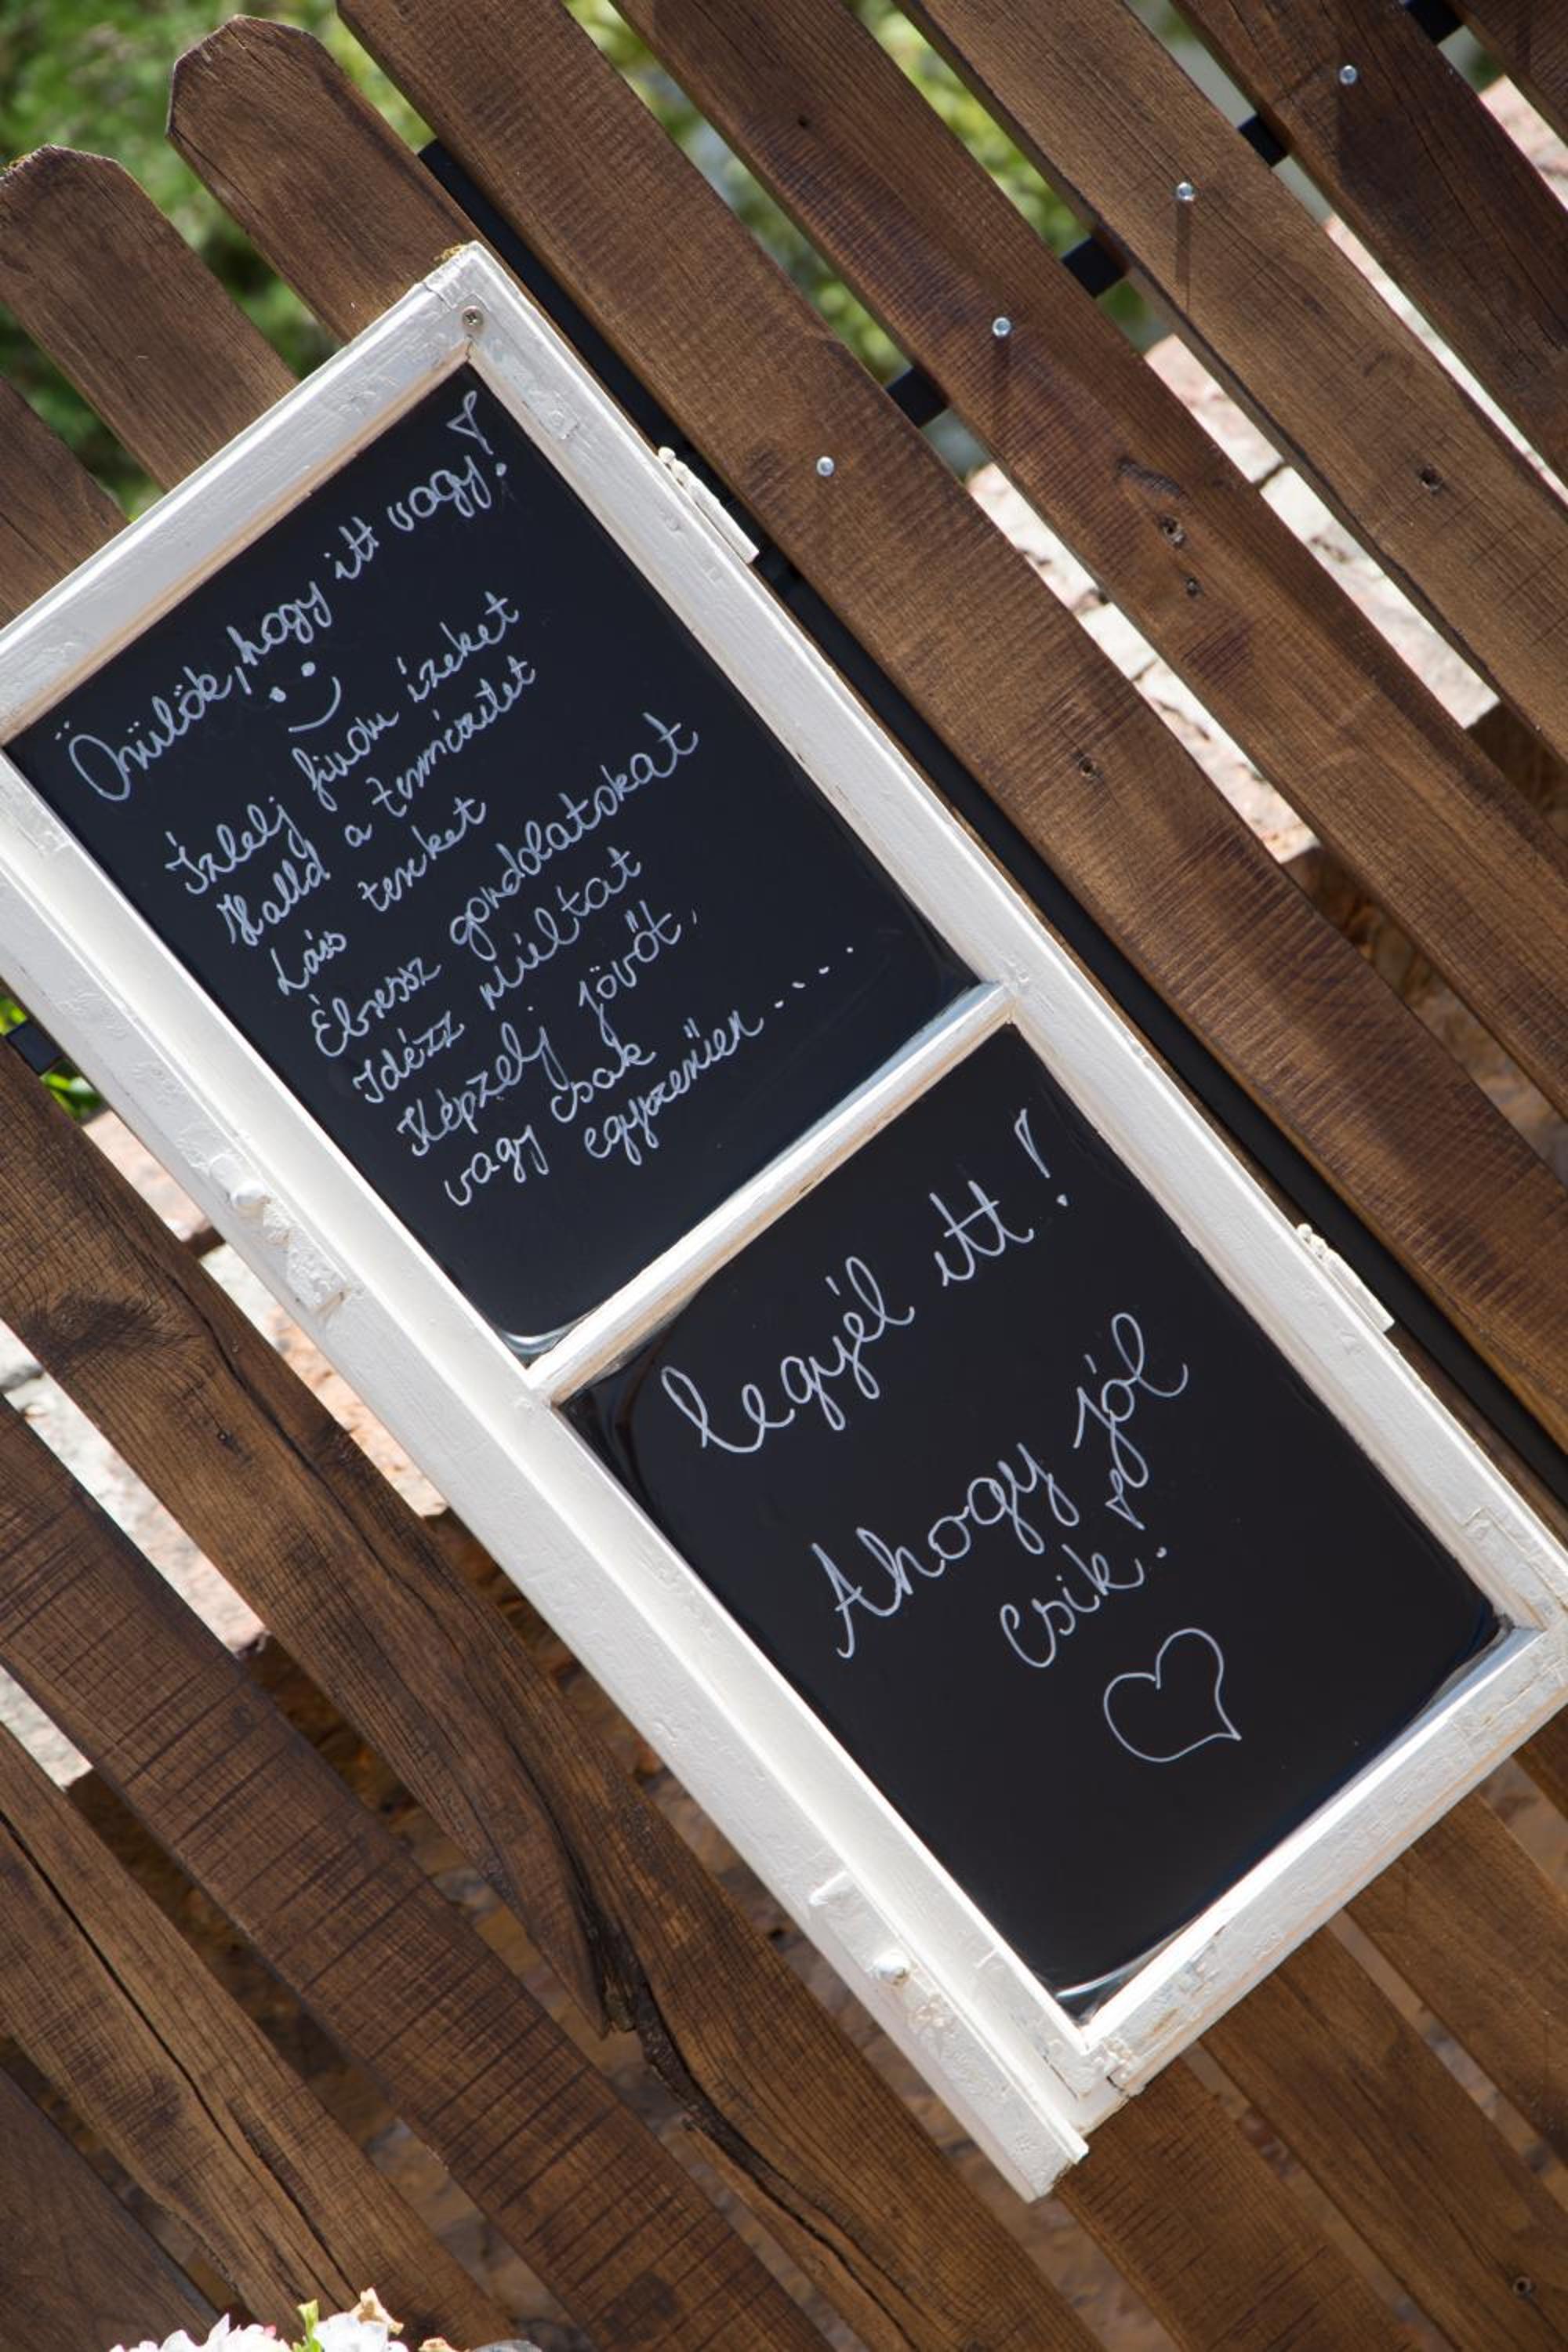 Örülök, hogy itt vagy!
Ízlelj finom ízeket
Halld a természetet
Láss tereket
Ébressz gondolatokat
Idézz múltat
Képzelj jövőt,
vagy csak
egyszerűen.....
legyél itt!
Ahogy jól
esik.